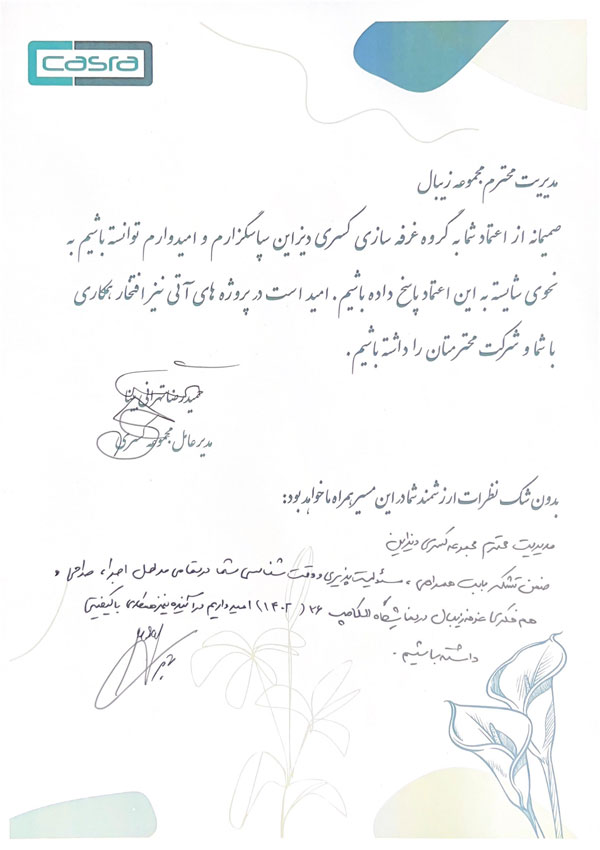 casra
مدیریت محترم مجموعه زیبال
صمیمانه از اعتماد شما به گروه غرفه سازی کسری دیزاین سپاسگزارم و امیدوارم توانسته باشیم به
نحوی شایسته به این اعتماد پاسخ داده باشیم. امید است در پروژه های آتی نیز افتخار همکاری
با شما و شرکت محترمتان را داشته باشیم.
حمیدرضا تهرانی
مدیر عامل مجموعه کسری
بدون شک نظرات ارزشمند شما در این مسیر همراه ما خواهد بود:
مدیریت محترم مجموعه کسری دیزاین
ضمن تشکر بابت همراهی، مسئولیت پذیری و وقت شناسی شما در تمامی مراحل اجرا، طراحی و
هم فکری غرفه زیبال در نمایشگاه الکامپ ۲۶ (۱۴۰۲) امیدواریم در آینده نیز همکاری با کیفیتی
داشته باشیم.